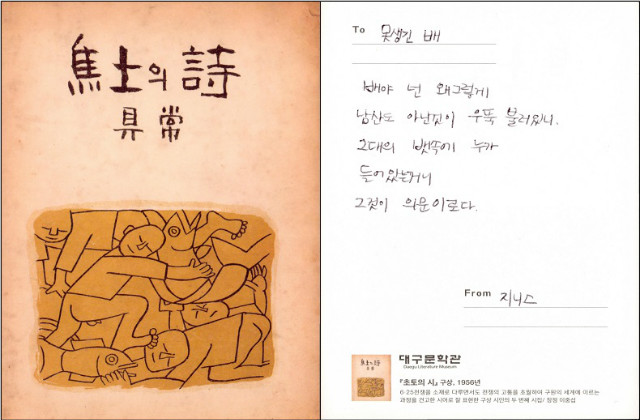 焦土의 詩
具常
To 못생긴 배
배야 넌 왜그렇게
남산도 아닌것이 우뚝 불러있니.
그대의 뱃속에 누가
들어있는거니
그것이 의문이로다.
From 지니스
焦土의詩
具常
대구문학관
Daegu Literature Museum
『초토의 시』 구상, 1956년
6·25전쟁을 소재로 다루면서도 전쟁의 고통을 초월하여 구원의 세계에 이르는
과정을 견고한 시어로 잘 표현한 구상 시인의 두 번째 시집/ 장정 이중섭